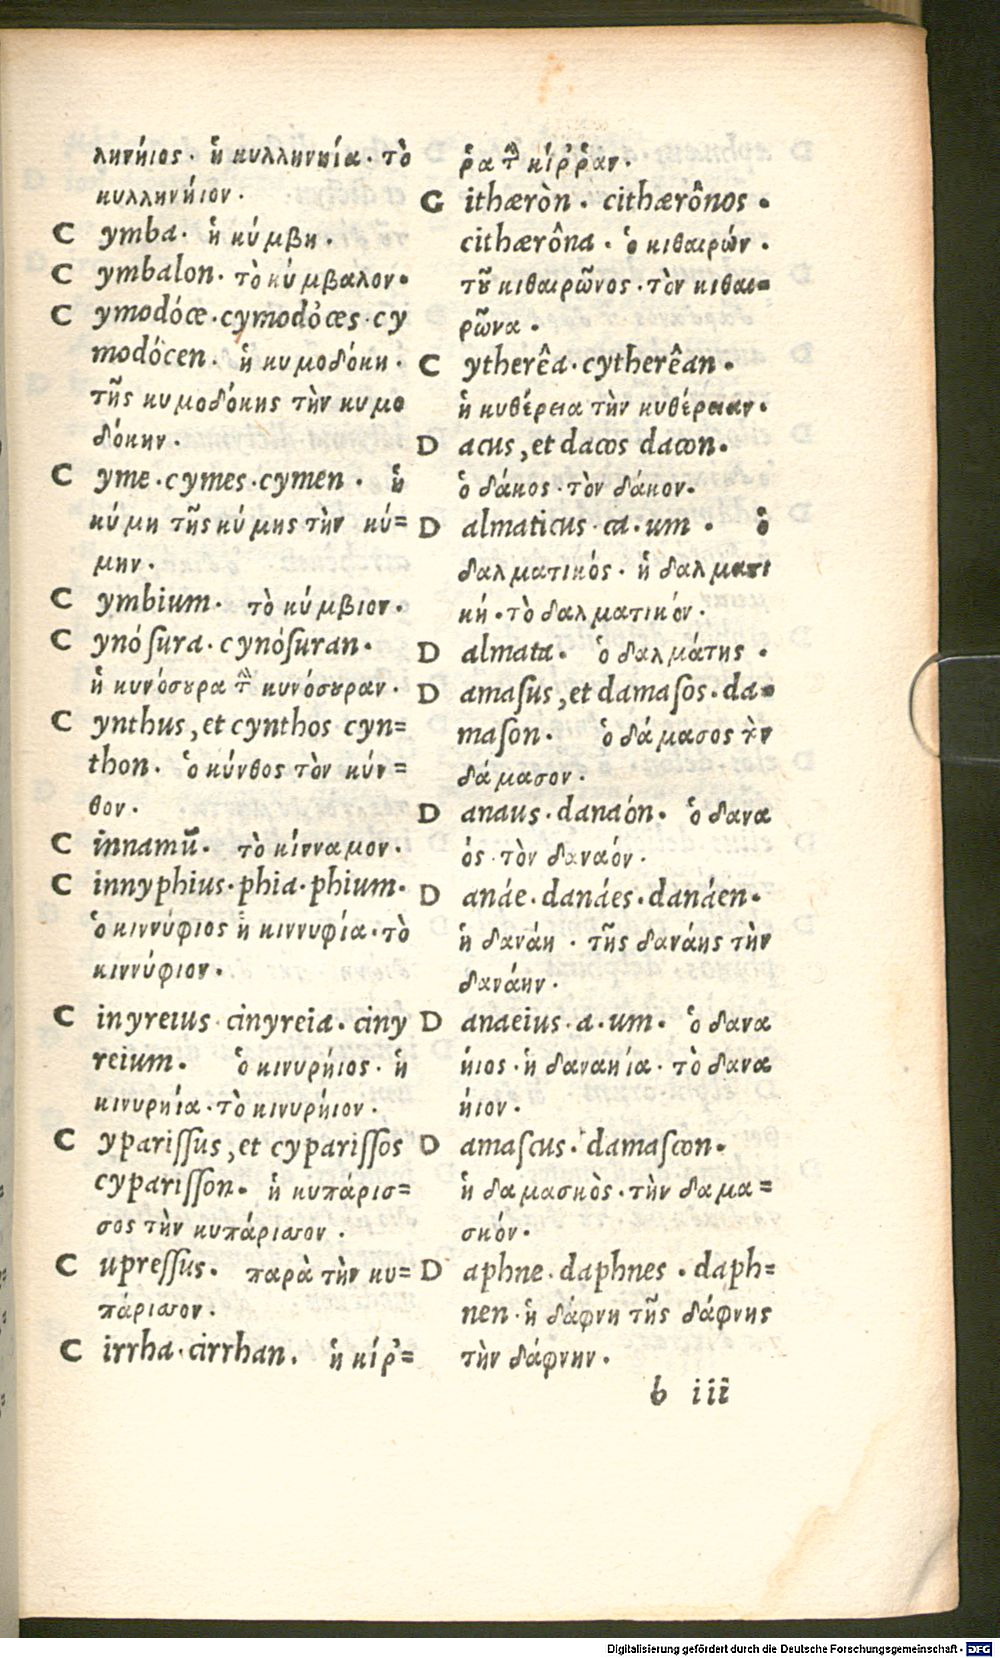 ληνήιος · ἡ κυλληνηία · τὸ
κυλληνήιον ·
C ymba · ἡ κύμβη ·
C ymbalon · τὸ κύμβαλον ·
C ymodóce · cymodóces · cy
modócen · ἡ κυμοδόκη ·
τῆς κυμοδόκης τὴν κυμο
δόκην ·
C yme · cymes · cymen · ἡ
κύμη τῆς κύμης τὴν κύ=
μην ·
C ymbium · τὸ κύμβιον ·
C ynóſura · cynóſuran ·
ἡ κυνόσουρα τὴν κυνόσουραν ·
C ynthus, et cynthos cyn=
thon · ὁ κύνθος τὸν κύν=
θον ·
C innamū · τὸ κίνναμον ·
C innyphius · phia · phium ·
ὁ κιννύφιος ἡ κιννυφία · τὸ
κιννύφιον ·
C inyreius cinyreia · ciny
reium · ὁ κινυρήιος · ἡ
κινυρηία · τὸ κινυρήιον ·
C ypariſſus, et cypariſſos
cypariſſon · ἡ κυπάρισ=
σος τὴν κυπάρισσον ·
C upreſſus · παρὰ τὴν κυ=
πάρισσον ·
C irrha · cirrhan · ἡ κίῤ=
ῥα τὴν κίῤῥαν ·
C ithæròn · cithærônos ·
cithærôna · ὁ κιθαιρών ·
τοῦ κιθαιρῶνος · τὸν κιθαι=
ρῶνα ·
C ytherêa · cytherêan ·
ἡ κυθέρεια τὴν κυθέρειαν ·
D acus, et dacos dacon ·
ὁ δάκος · τὸν δάκον ·
D almaticus · ca · um · ὁ
δαλματικός · ἡ δαλματι
κή · τὸ δαλματικόν ·
D almata · ὁ δαλμάτης ·
D amaſus, et damaſos · da=
maſon · ὁ δάμασος τὸν
δάμασον ·
D anaus · danaón · ὁ δανα
ός · τὸν δαναόν ·
D anáe · danáes · danáen ·
ἡ δανάη · τῆς δανάης τὴν
δανάην ·
D anaeius · a · um · ὁ δανα
ήιος · ἡ δαναηία · τὸ δανα
ήιον ·
D amaſcus · damaſcon ·
ἡ δαμασκὸς · τὴν δαμα=
σκόν ·
D aphne · daphnes · daph=
nen · ἡ δάφνη τῆς δάφνης
τὴν δάφνην ·
b iii
Digitalisierung gefördert durch die Deutsche Forschungsgemeinschaft - DFG